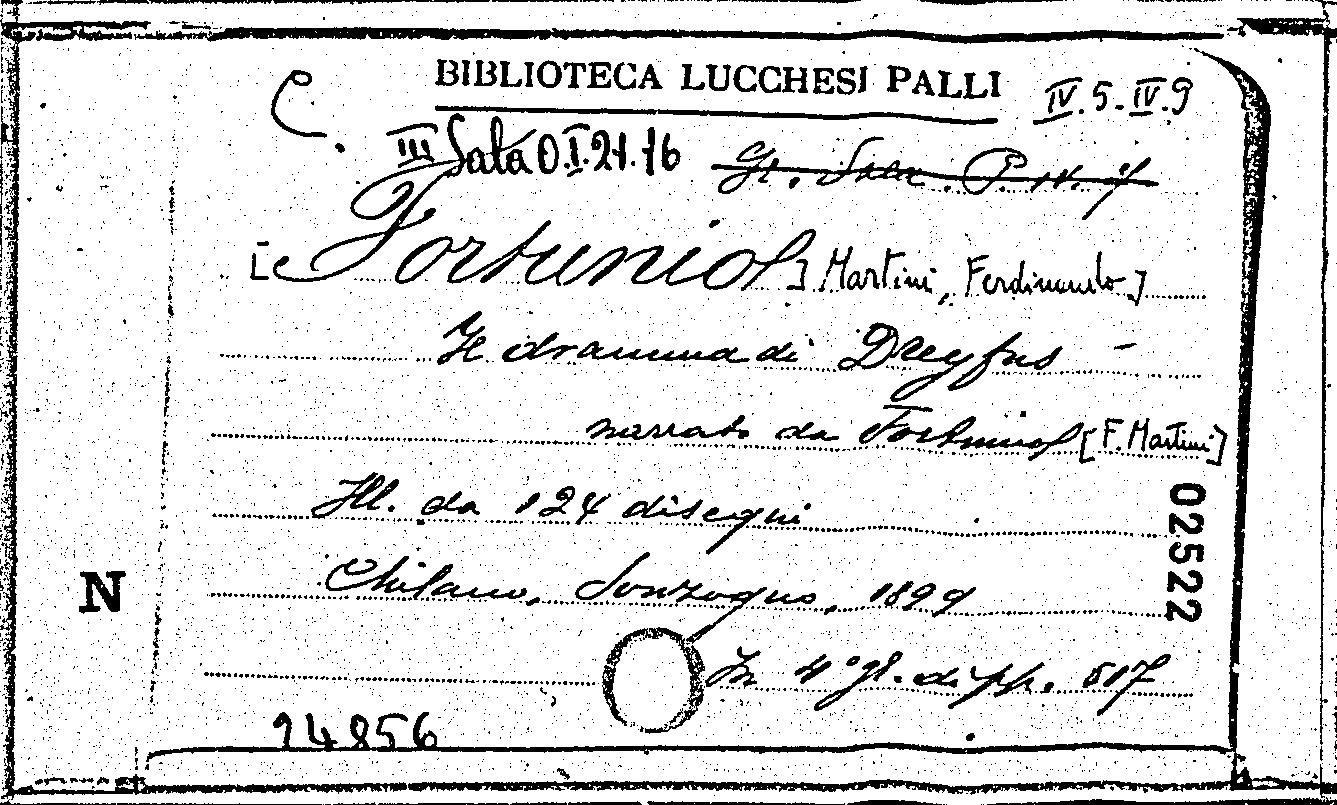 C.
BIBLIOTECA LUCCHESI PALLI
IV.5.IV.9
III Sala O.I.21.16
Gr. Sala. P.
[Fortunio] Martini, Ferdinando]
Il dramma di Dreyfus -
narrato da Fortunio [F. Martini]
Ill. da 124 disegni
Milano, Sonzogno, 1899
In 4° gr. di pp. 517
02522
N
24856